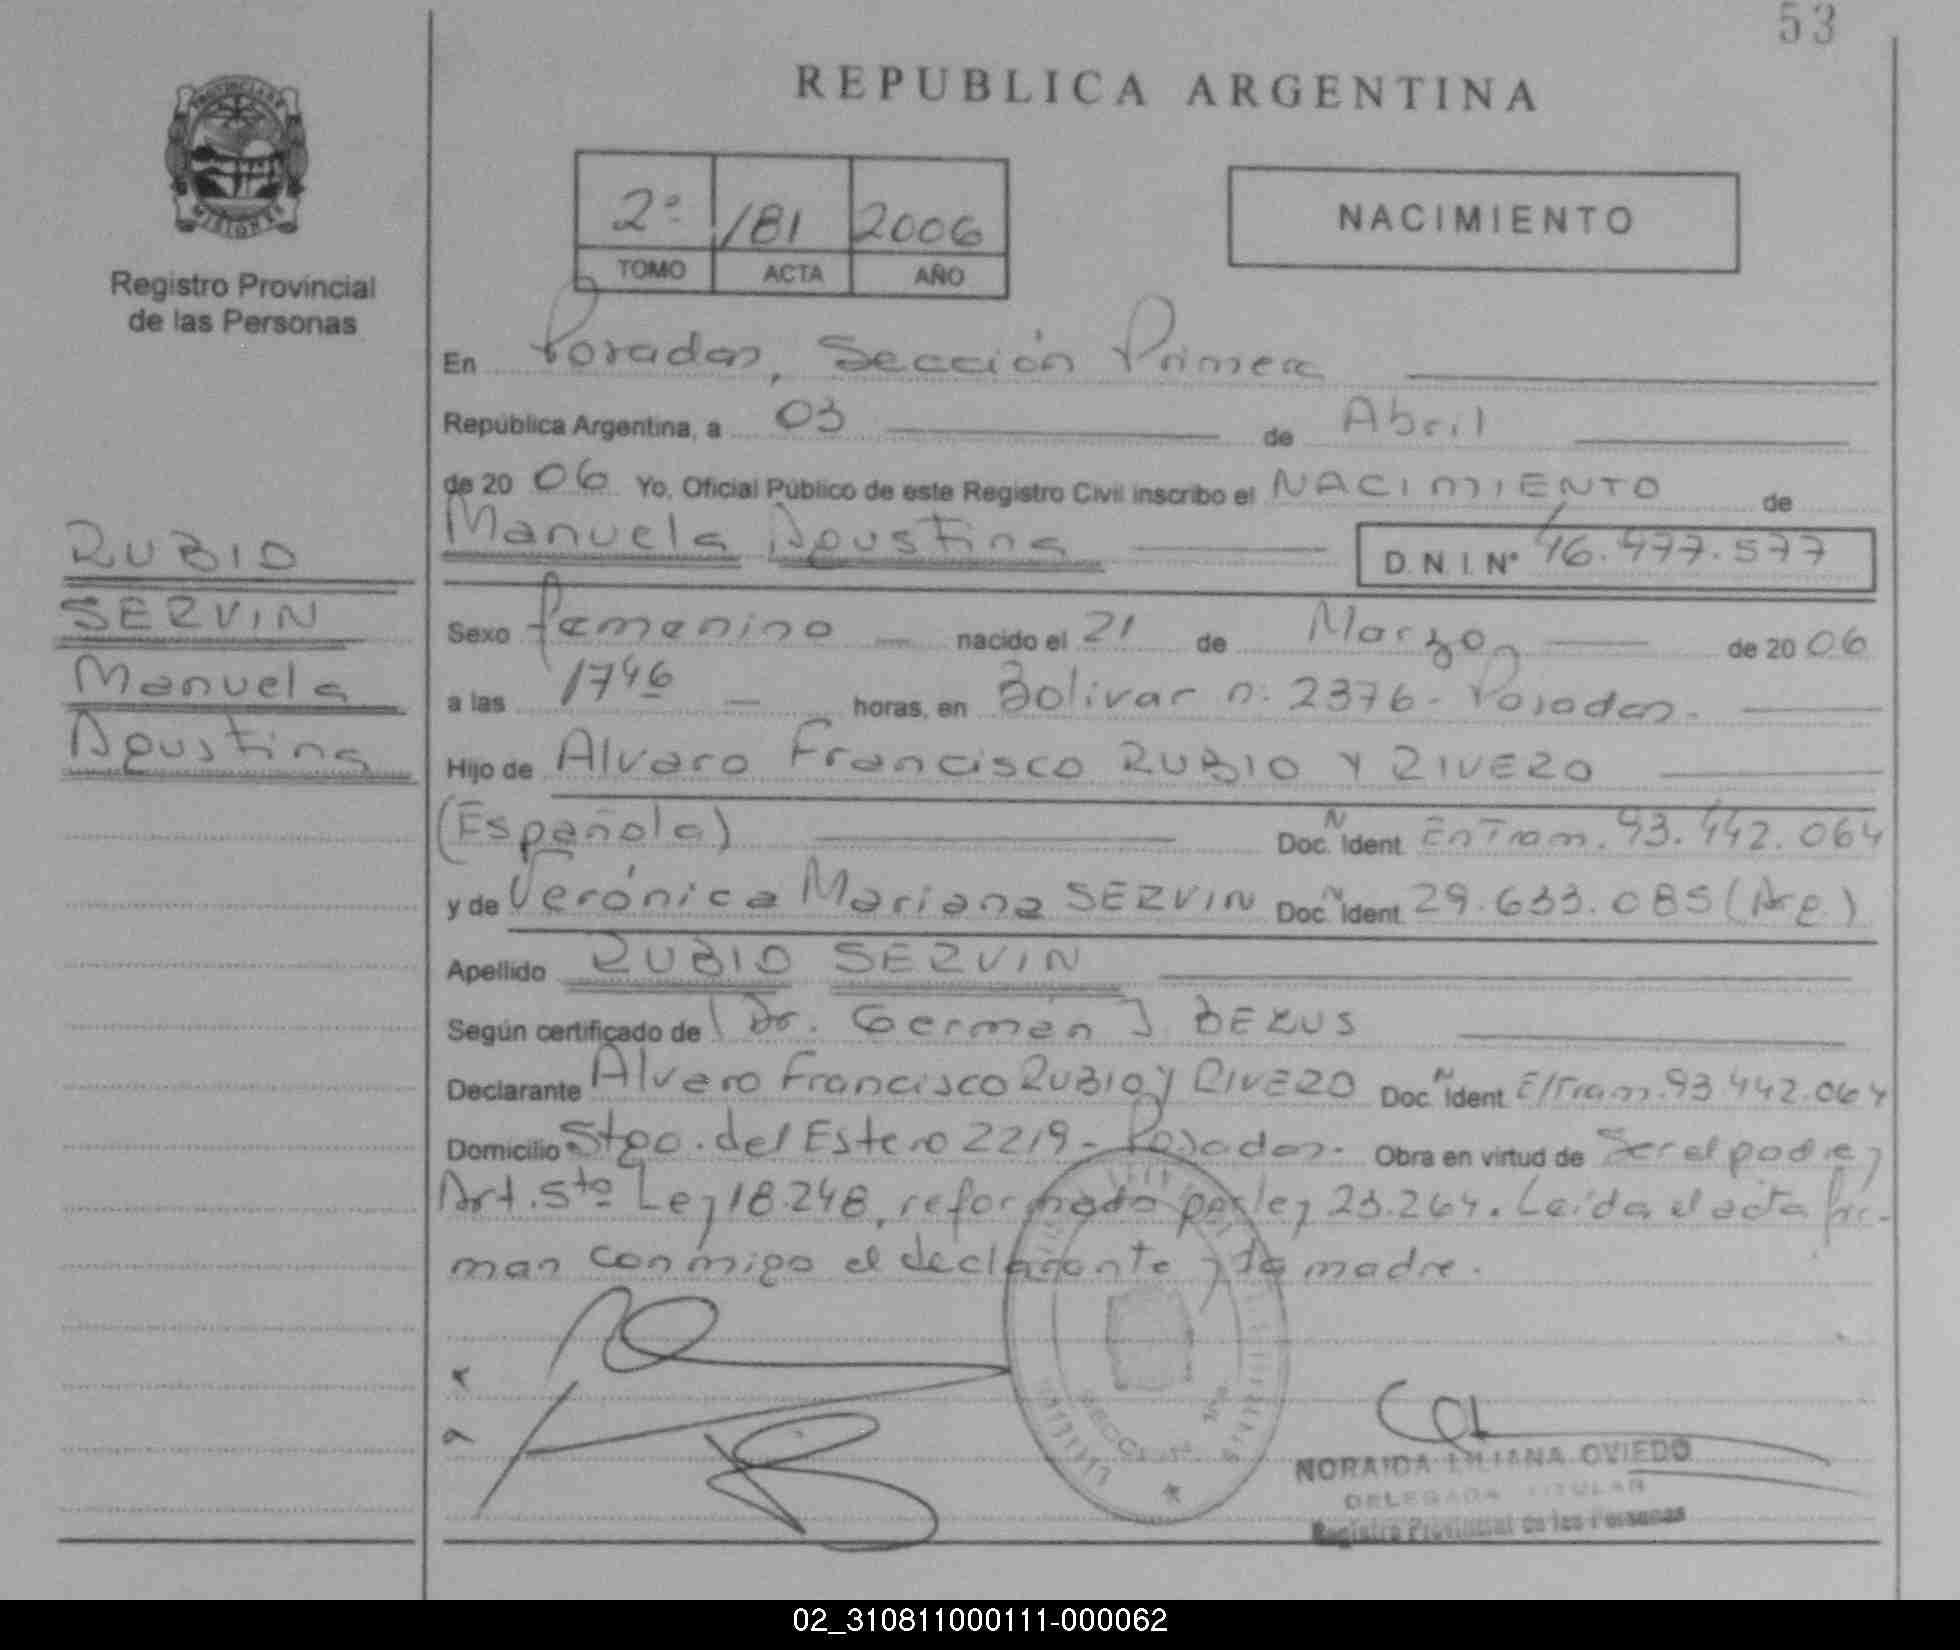 53
REPUBLICA ARGENTINA
PROVINCIA DE
MISIONES
Registro Provincial
de las Personas
2º /81 2006
TOMO ACTA AÑO
NACIMIENTO
En Posadas, Sección Primera
República Argentina, a 03 de Abril
de 2006 Yo, Oficial Público de este Registro Civil inscribo el NACIMIENTO de
Manuela Agustina D.N.I. Nº 46.477.577
RUBIO
SERVIN
Manuela
Agustina
Sexo femenino nacido el 21 de Marzo de 2006
a las 1746 horas, en Bolivar n: 2376 - Posadas.
Hijo de Alvaro Francisco RUBIO Y RIVERO
(Española) Doc. N Ident. EnTram. 93.442.064
y de Verónica Mariana SERVIN Doc. N Ident. 29.633.085 (Arg.)
Apellido RUBIO SERVIN
Según certificado de (Dr. Germán J. BEZUS
Declarante Alvaro Francisco RUBIO y RIVERO Doc. N Ident. E/Tram. 93 442.064
Domicilio Stgo. del Estero 2219 - Posadas. Obra en virtud de Ser el padre y
Art. 5to Ley 18.248, reformado por ley 23.264. Leída el acta fir-
man conmigo el declarante y la madre.
NORAIDA LILIANA OVIEDO
DELEGADA TITULAR
Registro Provincial de las Personas
02_310811000111-000062